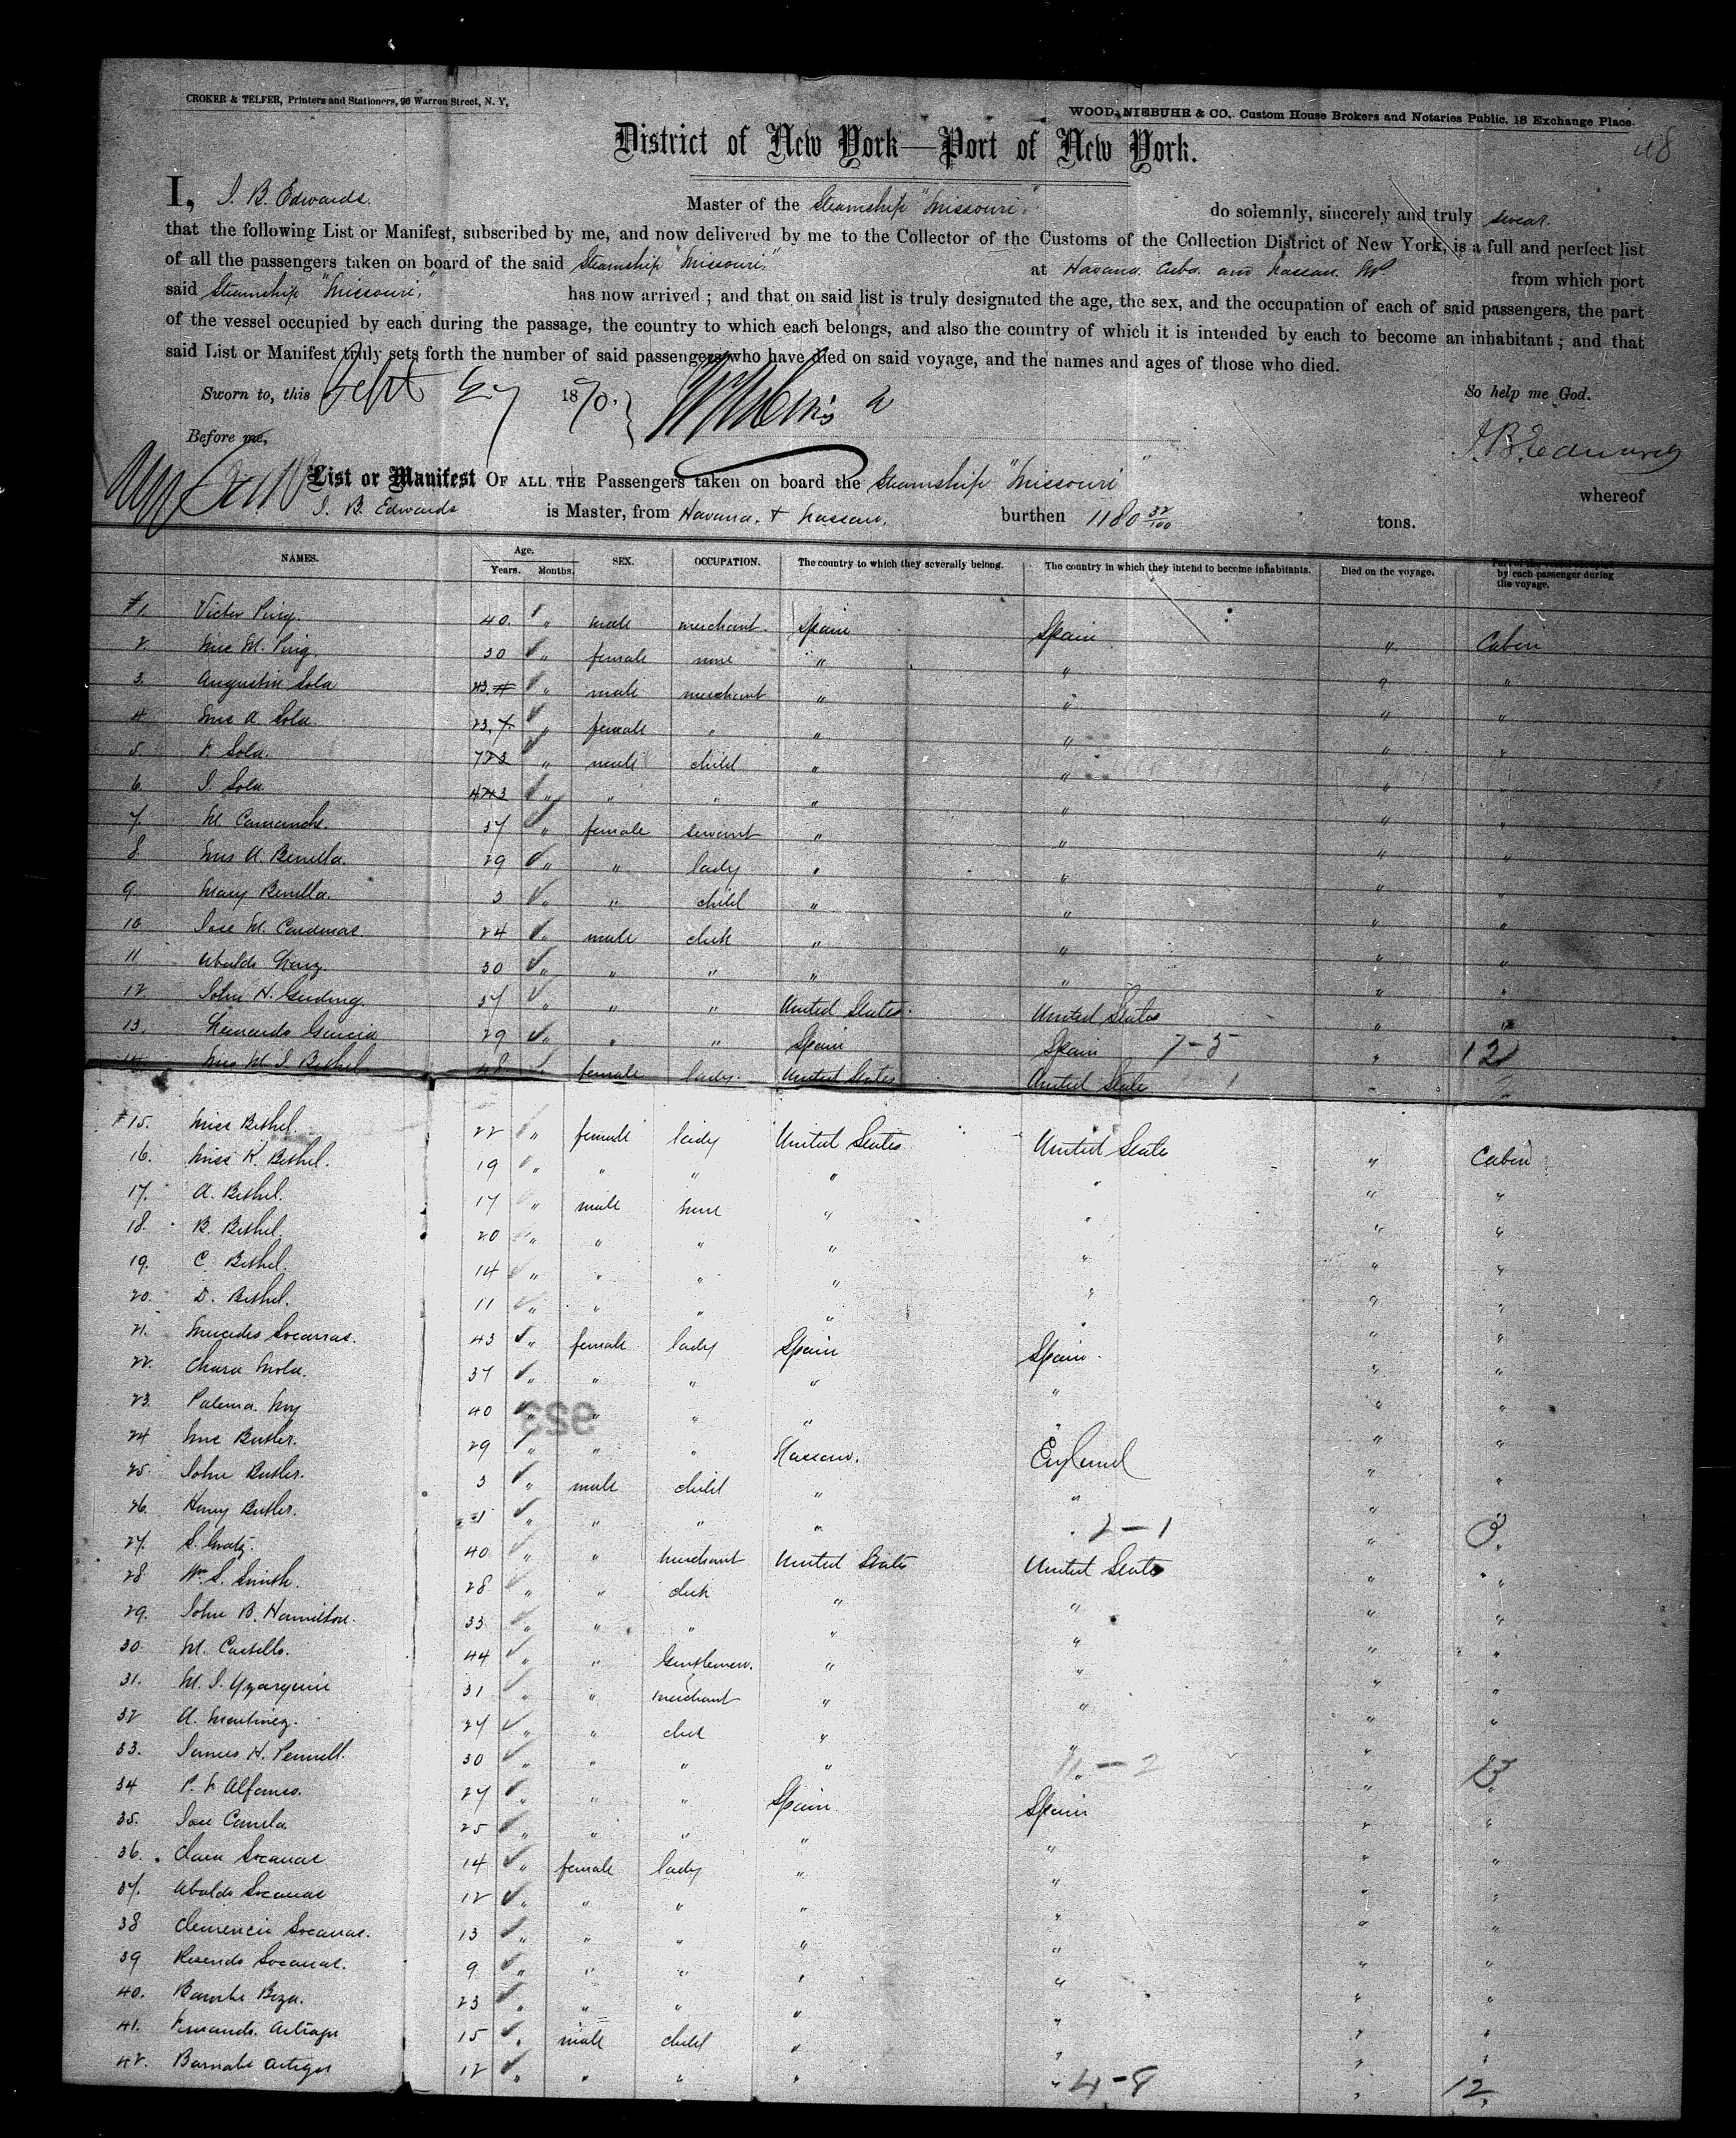 CROKER & TELFER, Printers and Stationers, 96 Warren Street, N. Y,
WOOD, NIEBUHR & CO., Custom House Brokers and Notaries Public, 18 Exchange Place.
118
District of New York—Port of New York.
I, J. B. Edwards. Master of the Steamship "Missouri," do solemnly, sincerely and truly swear.
that the following List or Manifest, subscribed by me, and now delivered by me to the Collector of the Customs of the Collection District of New York, is a full and perfect list
of all the passengers taken on board of the said Steamship "Missouri," at Havana. Cuba. and Nassau. NP. from which port
said Steamship "Missouri," has now arrived; and that on said list is truly designated the age, the sex, and the occupation of each of said passengers, the part
of the vessel occupied by each during the passage, the country to which each belongs, and also the country of which it is intended by each to become an inhabitant; and that
said List or Manifest truly sets forth the number of said passengers who have died on said voyage, and the names and ages of those who died.
Sworn to, this Sept 27 1870. So help me God.
Before me, J. B. Edwards
List or Manifest OF ALL THE Passengers taken on board the Steamship "Missouri" whereof
J. B. Edwards is Master, from Havana, & Nassau. burthen 1180 32/100 tons.
NAMES. Age. Years. Months. SEX. OCCUPATION. The country to which they severally belong. The country in which they intend to become inhabitants. Died on the voyage. Part of the vessel occupied by each passenger during the voyage.
#1. Victor Puig. 40. " male merchant. Spain Spain " Cabin
2. Mrs M. Puig. 30 " female none " " " "
3. Augustin Sola 43 " male merchant " " " "
4. Mrs A. Sola 23 " female " " " " "
5. F. Sola. 7 " male child " " " "
6. J. Sola. 4 " " " " " " "
7. M. Camanche. 37 " female servant " " " "
8. Mrs A. Benilla. 29 " " lady " " " "
9. Mary Benilla. 3 " " child " " " "
10 Jose M. Cardenas. 24 " male clerk " " " "
11 Ubaldo 30 " " " " " " "
12. John H. 37 " " " United States. United States " "
13. Garcia 29 " " " Spain Spain 7-5 " 12
14. Mrs M. J. Bethel 48 " female lady. United States United State 1 " "
#15. Miss Bethel. 22 " female lady United States United State " Cabin
16. Miss K. Bethel. 19 " " " " " " "
17. A. Bethel. 17 " male none " " " "
18. B. Bethel. 20 " " " " " " "
19. C. Bethel. 14 " " " " " " "
20. D. Bethel. 11 " " " " " " "
21. Mercedes Socarras. 43 " female lady Spain Spain. " "
22. Chara Mola. 37 " " " " " " "
23. Paloma. 40 " " " " " " "
24 Mrs Butler. 29 " " " Nassau. England " "
25. John Butler. 3 " male child " " " "
26. Henry Butler. 1 " " " " " 2-1 " 3.
27. S. 40 " " merchant United States United States " "
28 Wm. S. Smith. 28 " " clerk " " " "
29. John B. Hamilton. 33 " " " " " " "
30. M. Castillo. 44 " " Gentleman. " " " "
31. M. J. Yzarguin 31 " " merchant " " " "
32 A. Martinez. 24 " " clerk " " " "
33. James H. Pennell. 30 " " " " " 11-2 " 13
34 P. F. Alfonso. 27 " " " Spain Spain " "
35. Jose Camila 25 " " " " " " "
36. Clara Socarras 14 " female lady " " " "
37. Ubaldo Socarras 12 " " " " " " "
38 Clemencia Socarras. 13 " " " " " " "
39 Rosendo Socarras. 9 " " " " " " "
40. 23 " " " " " " "
41. Fernando. 15 " male child " " " "
42. Barnabe Artiga 12 " " " " " 4-8 " 12,